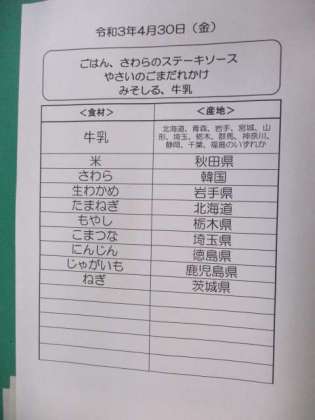 令和3年4月30日（金）
ごはん、さわらのステーキソース
やさいのごまだれかけ
みそしる、牛乳
＜食材＞ ＜産地＞
牛乳 北海道、青森、岩手、宮城、山
形、埼玉、栃木、群馬、神奈川、
静岡、千葉、福島のいずれか
米 秋田県
さわら 韓国
生わかめ 岩手県
たまねぎ 北海道
もやし 栃木県
こまつな 埼玉県
にんじん 徳島県
じゃがいも 鹿児島県
ねぎ 茨城県